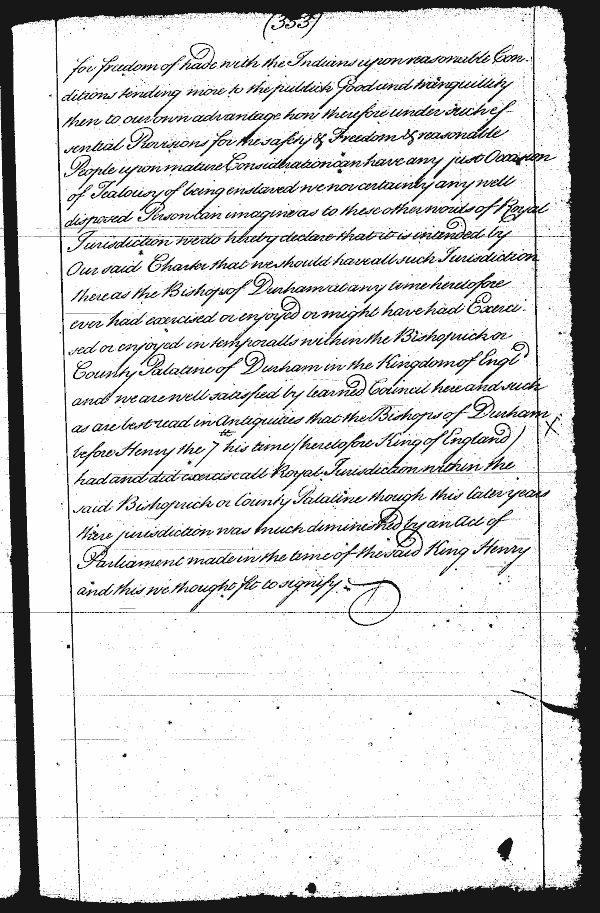 (333)
for freedom of trade with the Indians upon reasonable Con-
ditions tending more to the publick Good and tranquillity
then to our own advantage how therefore under such es-
sential Provisions for the safety & Freedom & reasonable
People upon mature Consideration can have any just Occasion
of Jealousy of being enslaved we nor certainly any well
disposed Person can imagine as to these other words of Royal
Jurisdiction we do hereby declare that it is intended by
Our said Charter that we should have all such Jurisdiction
there as the Bishops of Durham at any time heretofore
ever had exercised or enjoyed or might have had Exerci-
sed or enjoyed in temporalls within the Bishoprick or
County Palatine of Durham in the Kingdom of Engld
and we are well satisfied by learned Council here and such
as are best read in Antiquities that the Bishops of Durham
X
before Henry the 7th his time (heretofore King of England)
had and did exercise all Royal Jurisdiction within the
said Bishoprick or County Palatine though this later years
there jurisdiction was much diminished by an Act of
Parliament made in the time of the said King Henry
and this we thought fit to signify.